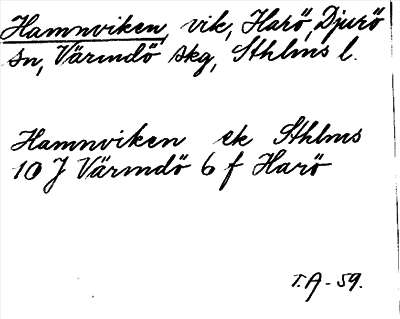 Hamnviken, vik, Harö, Djurö
sn, Värmdö skg, Sthlms l.
Hamnviken ek Sthlms
10 J Värmdö 6 f Harö
T.A-59.